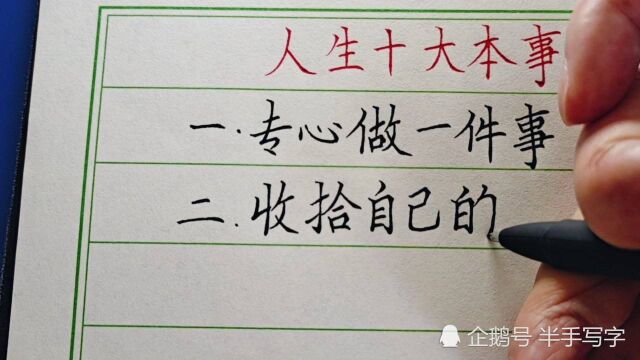 人生十大本事
一.专心做一件事
二.收拾自己的
企鹅号 半手写字